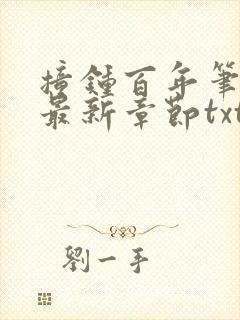 撞鍾百年筆
最新章節txt
劉一手